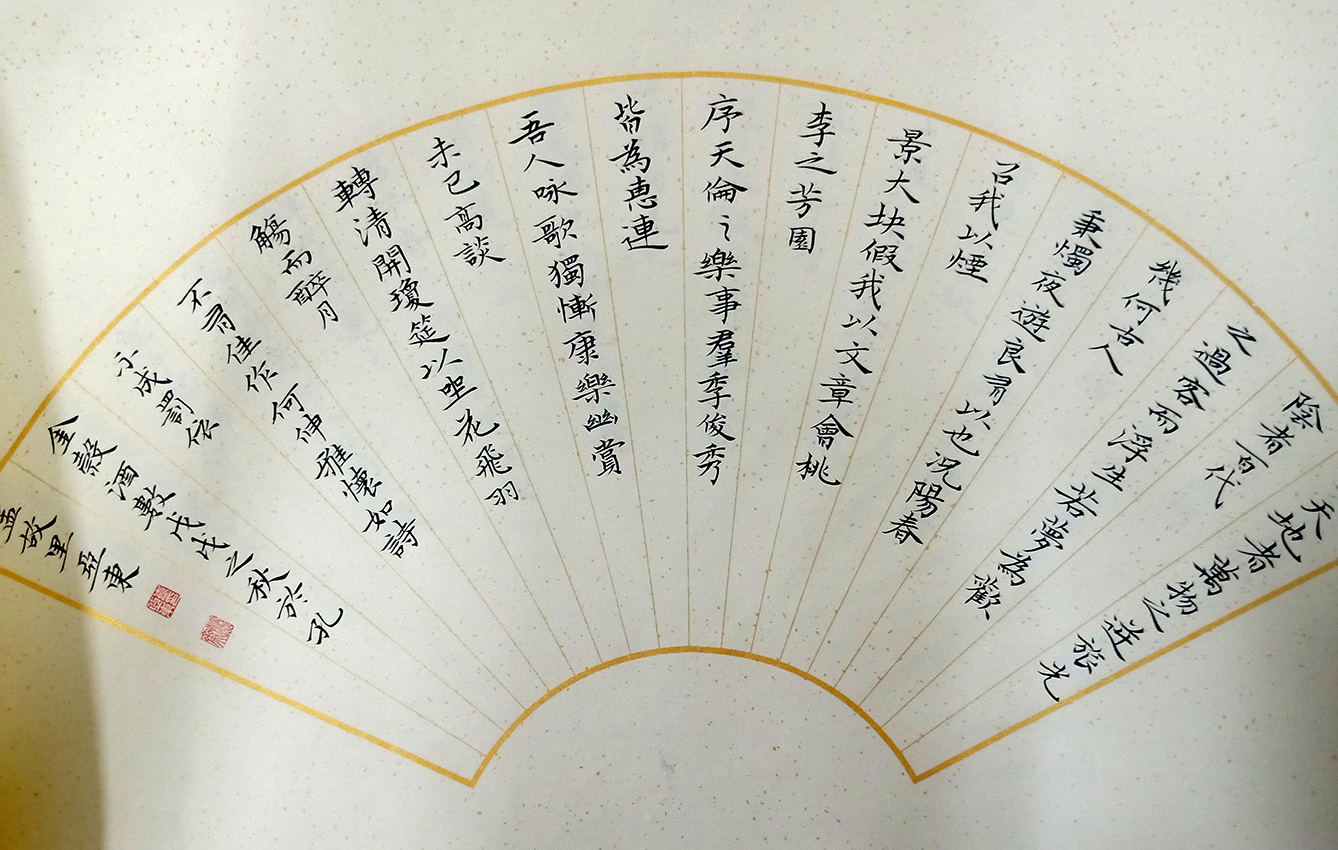 天地者萬物之逆旅光
陰者百代
之過客而浮生若夢為歡
幾何古人
秉燭夜遊良有以也况陽春
召我以煙
景大块假我以文章會桃
李之芳園
序天倫之樂事羣季俊秀
皆為惠連
吾人咏歌獨慚康樂幽賞
未已高談
轉清開瓊筵以坐花飛羽
觴而醉月
不有佳作何伸雅懷如詩
不成罰依
金穀酒數戊戌之秋於孔
孟故里亞東